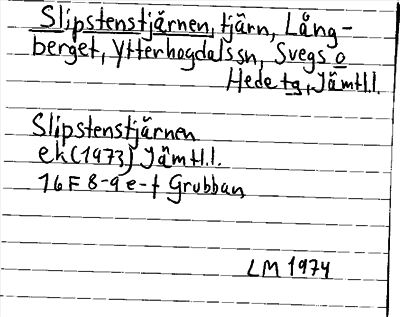 Slipstenstjärnen, tjärn, Lång-
berget, Ytterhogdalssn, Svegs o
Hede tg, Jämtl.l.
Slipstenstjärnen
ek (1973) Jämtl.l.
16 F 8-9 e-f Grubban
LM 1974